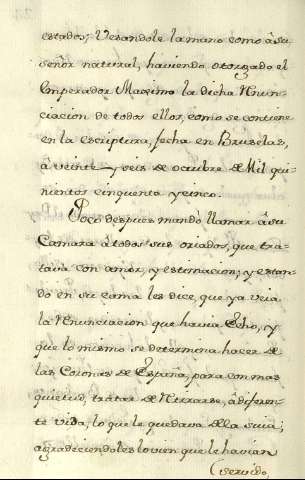 estados; Vesandole la mano como â su
señor natural, haviendo otorgado el
Emperador Maximo la dicha Renun-
ciacion de todos ellos, como se contiene
en la escriptura, fecha en Bruselas,
â veinte y seis de octubre de Mil qui-
nientos cinquenta y cinco.
Poco despues mandó llamar â su
Camara â todos sus criados, que tra-
tava con amor, y estimacion; y estan-
do en su cama les dice, que ya veia
la Renunciacion que havia Echo, y
que lo mismo se determina hacer de
las Coronas de España, para con mas
quietud, tratar de Retirarse, â diferen-
te vida, lo que le quedava de la suia;
agradeciendoles lo vien que le havian
(servido,